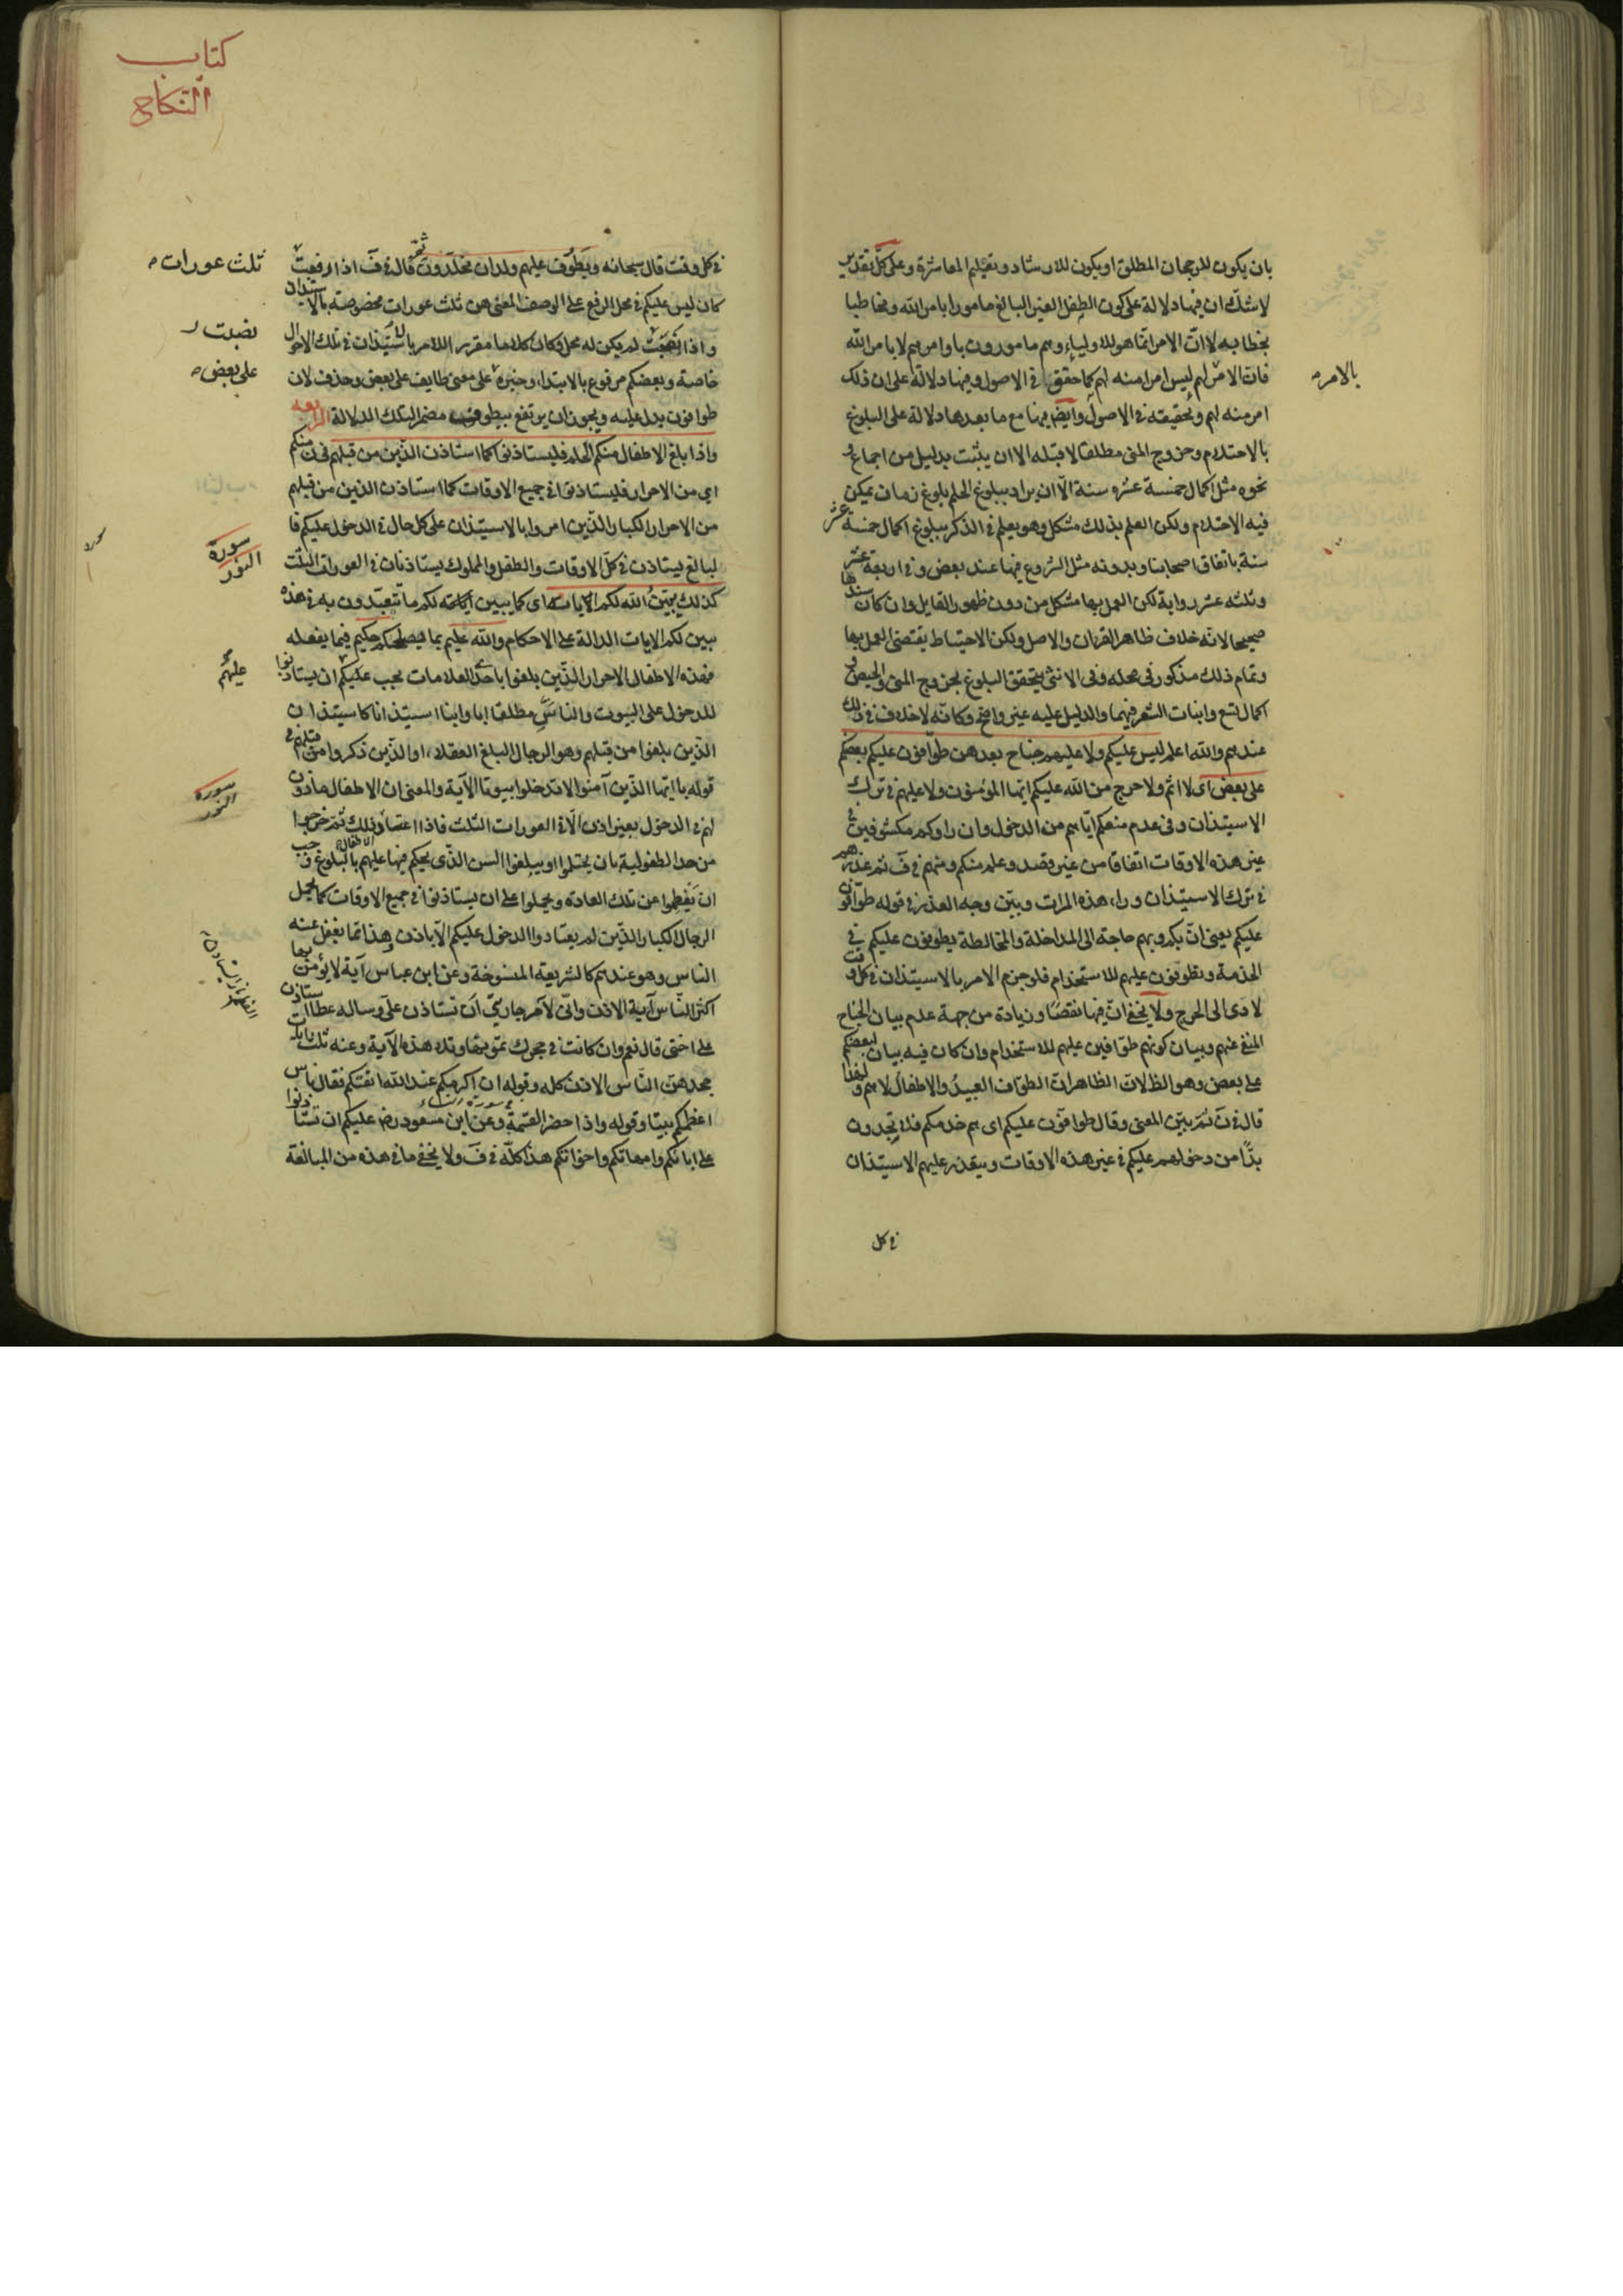 بان يكون للرجحان المطلق او يكون للارشاد وتعليم المعاشرة وعلى كل تقدير
لا شك ان فيها دلالة على كون الطفل الغير البالغ مامورا بامر الله ومخاطبا
بخطابه لا ان الامر انما هو للاولياء وهم مامورون باوامرهم لا بامر الله
فان الامر لهم ليس امرا منه لهم كما حقق في الاصول وفيها دلالة على ان ذلك
بالامر
امر منه لهم وتحقيقه في الاصول وايضا فيها مع ما بعدها دلالة على البلوغ
بالاحتلام وخروج المنى مطلقا لا قبله الا ان يثبت بدليل من اجماع و
نحوه مثل اكمال خمسة عشره سنة الا ان يراد ببلوغ الحلم بلوغ زمان يمكن
فيه الاحتلام ولكن العلم بذلك مشكل وهو يعلم في الذكر ببلوغ اكمال خمسة عشر
سنة باتفاق اصحابنا وبدونه مثل الشروع فيها عند بعض وفي اربعة عشر
وثلثه عشر رواية لكن العمل بها مشكل من دون ظهور القايل وان كان سندها
صحيحا لانه خلاف ظاهر القران والاصل ولكن الاحتياط يقتضى العمل بها
وتمام ذلك مذكور في محله وفى الانثى يتحقق البلوغ بخروج المنى والحيض و
اكمال تسع وانبات الشعر فيهما والدليل عليه غير واضح وكانه لا خلاف في ذلك
عندهم والله اعلم ليس عليكم ولا عليهم جناح بعدهن طوافون عليكم بعضكم
على بعض اى لا اثم ولا حرج من الله عليكم ايها المؤمنون ولا عليهم في ترك
الاستيذان وفى عدم منعكم اياهم من الدخول وان راوكم مكشوفين في
غير هذه الاوقات اتفاقا من غير قصد وعلم منكم ومنهم في ف ثم عذرهم
في ترك الاستيذان وراء هذه المرات وبين وجه العذر في قوله طوافون
عليكم يعنى ان بكم وبهم حاجة الى المداخلة والمخالطة يطوفون عليكم في
الخدمة وتطوفون عليهم للاستخدام فلو جزم الامر بالاستيذان في كل وقت
لادى الى الحرج ولا يخفى ان فيها نقصا وزيادة من جهة عدم بيان الجناح
المنفى عنهم وبيان كونهم طوافين عليهم للاستخدام وان كان فيه بيان لبعضكم
على بعض وهو الظ لان الظاهر ان الطواف العبيد والاطفال لا هم ولهذا
قال في ن ثم بين المعنى وقال طوافون عليكم اى هم خدمكم فلا تجدون
بدا من دخولهم عليكم في غير هذه الاوقات ويتعذر عليهم الاستيذان
في كل
كتاب
النكاح
في كل وقت قال سبحانه ويطوف عليهم ولدان مخلدون ثم قال في ف اذا رفعت
ثلث عورات
كان ليس عليكم في محل الرفع على الوصف المعنى هن ثلث عورات مخصوصة بالاستيذان
واذا نصبت لم يكن له محل وكان كلاما مقررا للامر بالاستيذان في تلك الاحوال
نصبت
خاصة وبعضكم مرفوع بالابتداء وخبره على معنى طايف على بعض وحذف لان
على بعض
طوافون يدل عليه ويجوز ان يرتفع بيطوف مضمرا لتلك الدلالة الرابعه
واذا بلغ الاطفال منكم الحلم فليستاذنوا كما استاذن الذين من قبلهم
اي من الاحرار فليستاذنوا في جميع الاوقات كما استاذن الذين من قبلهم
من الاحرار الكبار الذين امروا بالاستيذان على كل حال في الدخول عليكم فا
لبالغ يستاذن في كل الاوقات والطفل والمملوك يستاذنان في العورات الثلث
سورة
النور
كذلك يبين الله لكم اياته اى كما يبين لكم ما تتعبدون به في هذه
يبين لكم الايات الدالة على الاحكام والله عليم بما يصلحكم حكيم فيما يفعله
فهذه الاطفال الاحرار الذين بلغوا باحد العلامات يجب عليكم ان يستاذنوا
عليهم
للدخول على البيوت والناس مطلقا ابا وابنا استيذانا كاستيذان
الذين بلغوا من قبلهم وهو الرجال البلغ العقلاء او الذين ذكروا من قبلهم في
قوله يا ايها الذين آمنوا لا تدخلوا بيوتا الآية والمعنى ان الاطفال ماذون
سورة
النور
لهم في الدخول بغير اذن الا في العورات الثلث فاذا اعتاد ذلك ثم خرجوا
من حد الطفولية بان يحتلموا او يبلغوا السن الذى يحكم فيها عليهم بالبلوغ وجب
ان يفطموا عن تلك العادة ويحملوا على ان يستاذنوا في جميع الاوقات كما يحمل
الرجال الكبار الذين لم يعتادوا الدخول عليكم الا باذن وهذا مما يغفل عنه
الناس وهو عندهم كالشريعة المنسوخة وعن ابن عباس آية لا يؤمن بها
اكثر الناس آية الاذن وانى لآمر جاريتى ان تستاذن على وساله عطا استاذن
على اختى قال نعم وان كانت في حجرك تمونها وتلا هذه الآية وعنه ثلث ايات
جحدهن الناس الاذن كله وقوله ان اكرمكم عند الله اتقيكم فقال ناس
اعظمكم بيتا وقوله واذا حضر القسمة وعن ابن مسعود رض عليكم ان تستاذنوا
سورة النساء
على ابائكم وامهاتكم واخواتكم هذا كله في ف ولا يخفى ما في هذه من المبالغة